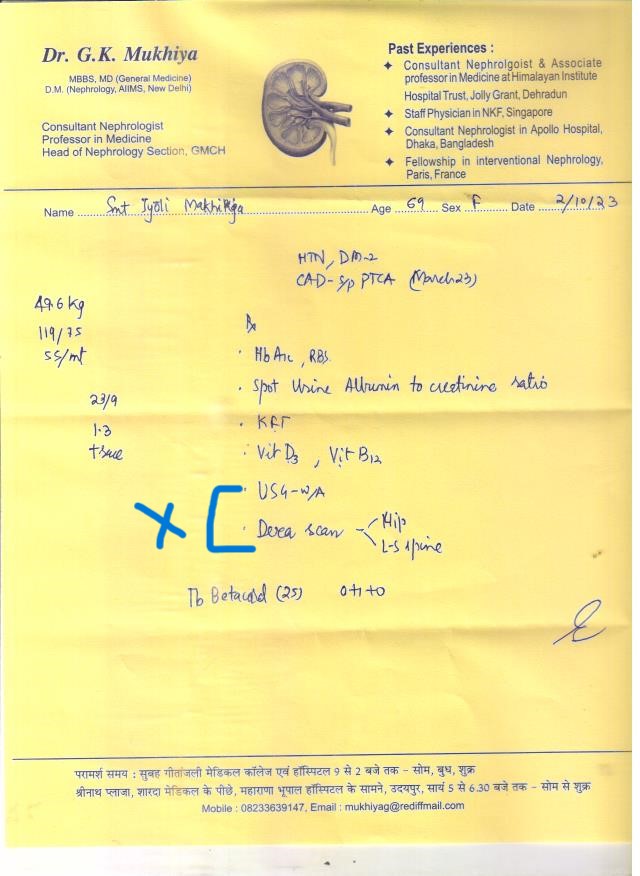 Dr. G.K. Mukhiya
MBBS, MD (General Medicine)
D.M. (Nephrology, AIIMS, New Delhi)
Consultant Nephrologist
Professor in Medicine
Head of Nephrology Section, GMCH
Past Experiences :
Consultant Nephrolgoist & Associate
professor in Medicine at Himalayan Institute
Hospital Trust, Jolly Grant, Dehradun
Staff Physician in NKF, Singapore
Consultant Nephrologist in Apollo Hospital,
Dhaka, Bangladesh
Fellowship in interventional Nephrology,
Paris, France
Name Smt Jyoti Age 69 Sex F Date 2/10/23
HTN, DM-2
CAD- s/p PTCA (March 23)
49.6 kg
119/75
55/mt
Rx
HbA1c, RBS
Spot Urine Albumin to creatinine ratio
23/9
1.3
KFT
Vit D3, Vit B12
USG-W/A
X [
Dexa scan
Hip
L-S spine
Tb Betacard (25) 0+1+0
परामर्श समय : सुबह गीतांजली मेडिकल कॉलेज एवं हॉस्पिटल 9 से 2 बजे तक - सोम, बुध, शुक्र
श्रीनाथ प्लाजा, शारदा मेडिकल के पीछे, महाराणा भूपाल हॉस्पिटल के सामने, उदयपुर, सायं 5 से 6.30 बजे तक - सोम से शुक्र
Mobile : 08233639147, Email : mukhiyag@rediffmail.com